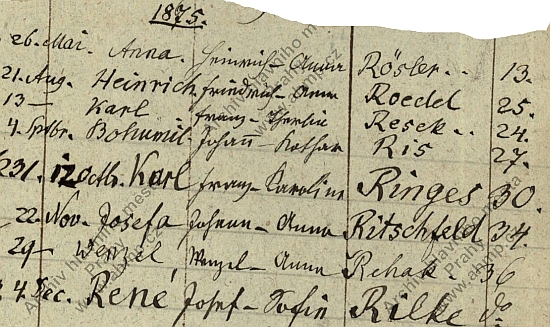 1875.
26. Mai. Anna. Heinrich - Anna Rösler.. 13.
21. Aug. Heinrich Friedrich - Anna Roedel 25.
13 — Karl Franz - Resek.. 24.
4. Sptbr. Bohumil Johann - Ris 27.
231. 12 Octb. Karl Franz - Karoline Ringes 30.
22. Nov. Josefa Johann - Anna Ritschfeld 34.
29 — Wenzel Wenzel - Anna Rehak 36
4. Dec. René, Josef - Sofie Rilke do
Archiv hlavního města Prahy
www.ahmp.cz